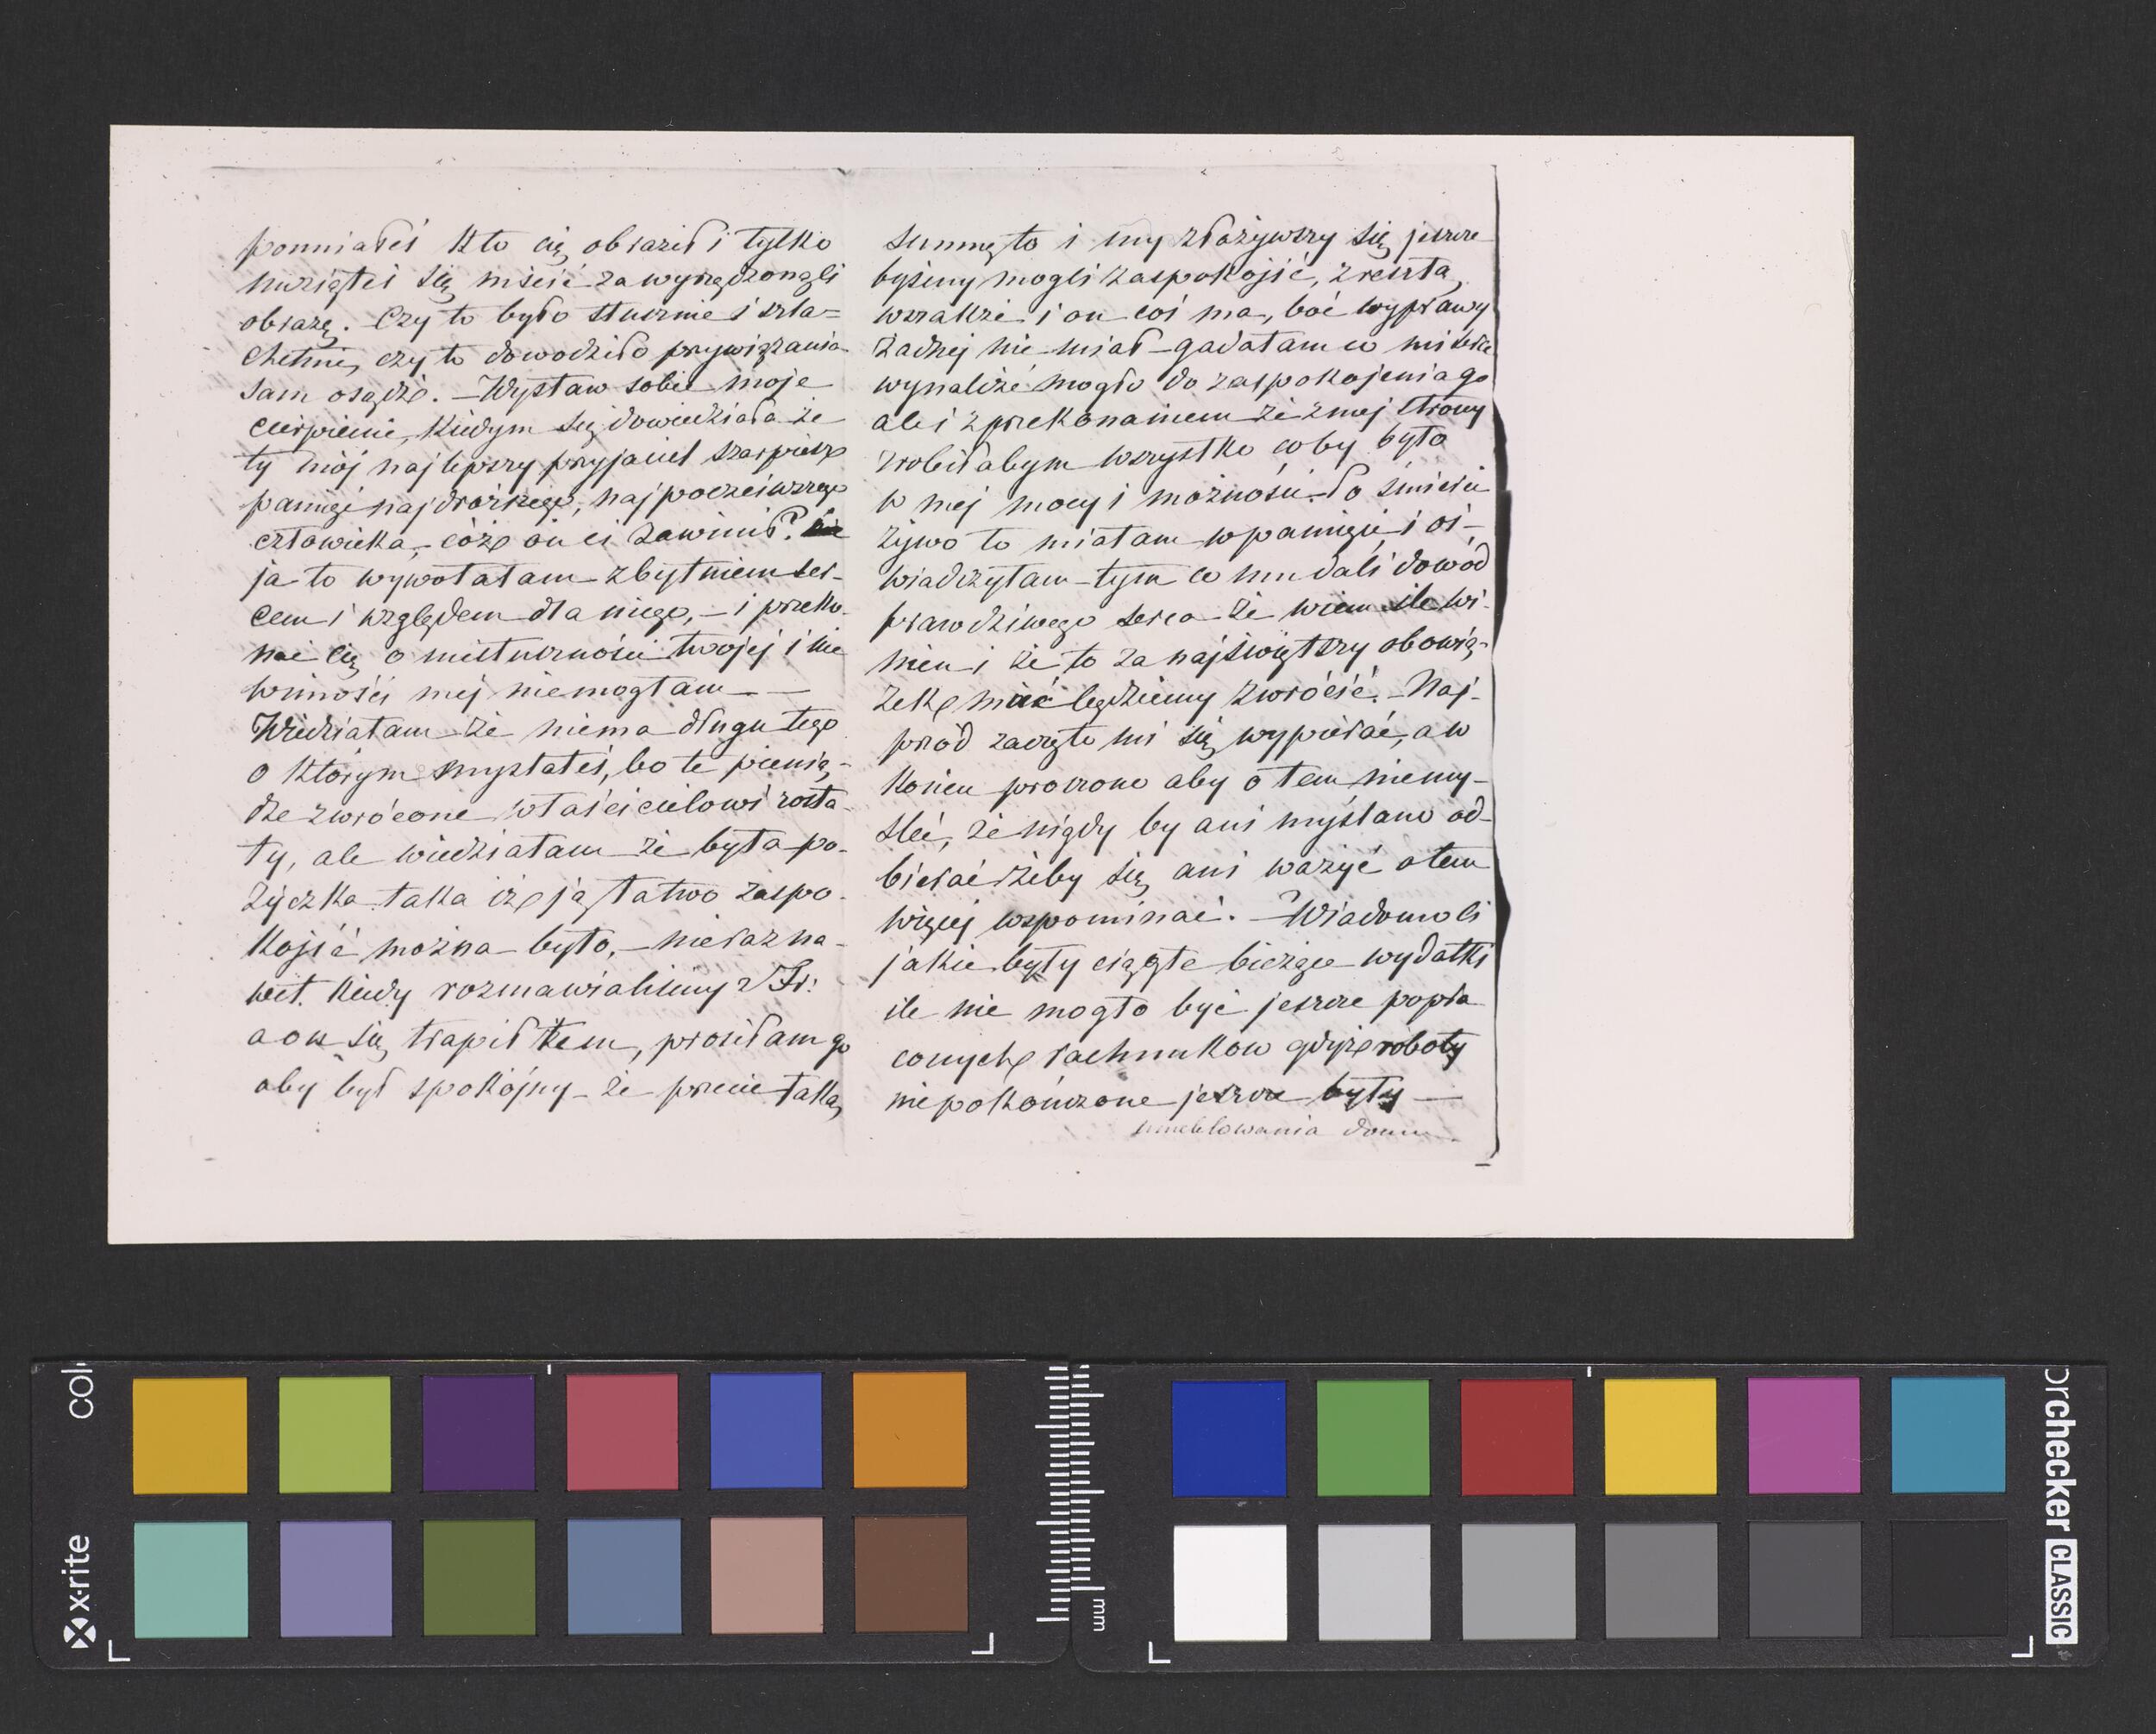 pomniałeś kto cię obraził i tylko
wziąłeś się mścić za wyrządzoną li
obrazę. Czy to było słusznie i szla=
chetnie, czy to dowodziło przywiązania
sam osądź. – Wystaw sobie moje
cierpienie, kiedym się dowiedziała że
ty mój najlepszy przyjaciel szarpiesz
pamięć najdroższego, najpoczciwszego
człowieka, – cóż on ci zawinił?
ja to wywołałam zbytniem ser-
cem i względem dla niego, – i przeko-
nać cię o niesłuszności twojej i nie
winności mej niemogłam – –
Wiedziałam że niema długu tego
o którym myślałeś, bo te pienią-
dze zwrócone właścicielowi zosta-
ły, ale wiedziałam że była po-
życzka taka iż ją łatwo zaspo-
koić można było, – nieraz na-
wet kiedy rozmawialiśmy z Fr:
a on się trapił tem, prosiłam go
aby był spokójny – że przecie taką
summę to i my złożywszy się jeszcze
byśmy mogli zaspokojić, zresztą,
wszakże i on coś ma, boć wyprawy
żadnej nie miał – gadałam co mi serce
wynaliźć mogło do zaspokojenia go
ale i z przekonaniem że z mej strony
zrobiłabym wszystko coby było
w mej mocy i możności. Po śmierci
żywo to miałam w pamięci, i oś-
wiadczyłam tym co mu dali dowód
prawdziwego serca – że wiem ile wi-
nien i że to za najświętszy obowią-
zek mieć będziemy zwrócić. – Naj-
przód zaczęto mi się wypierać, a w
końcu proszono aby o tem niemy-
śleć, że nigdy by ani myślano od-
bierać i żeby się ani ważyć o tem
więcej wspominać. – Wiadomo ci
jakie były ciągłe bieżące wydatki
ile nie mogło być jeszcze popła
conych rachunków gdyż roboty
niepokończone jeszcze były –
umeblowania domu